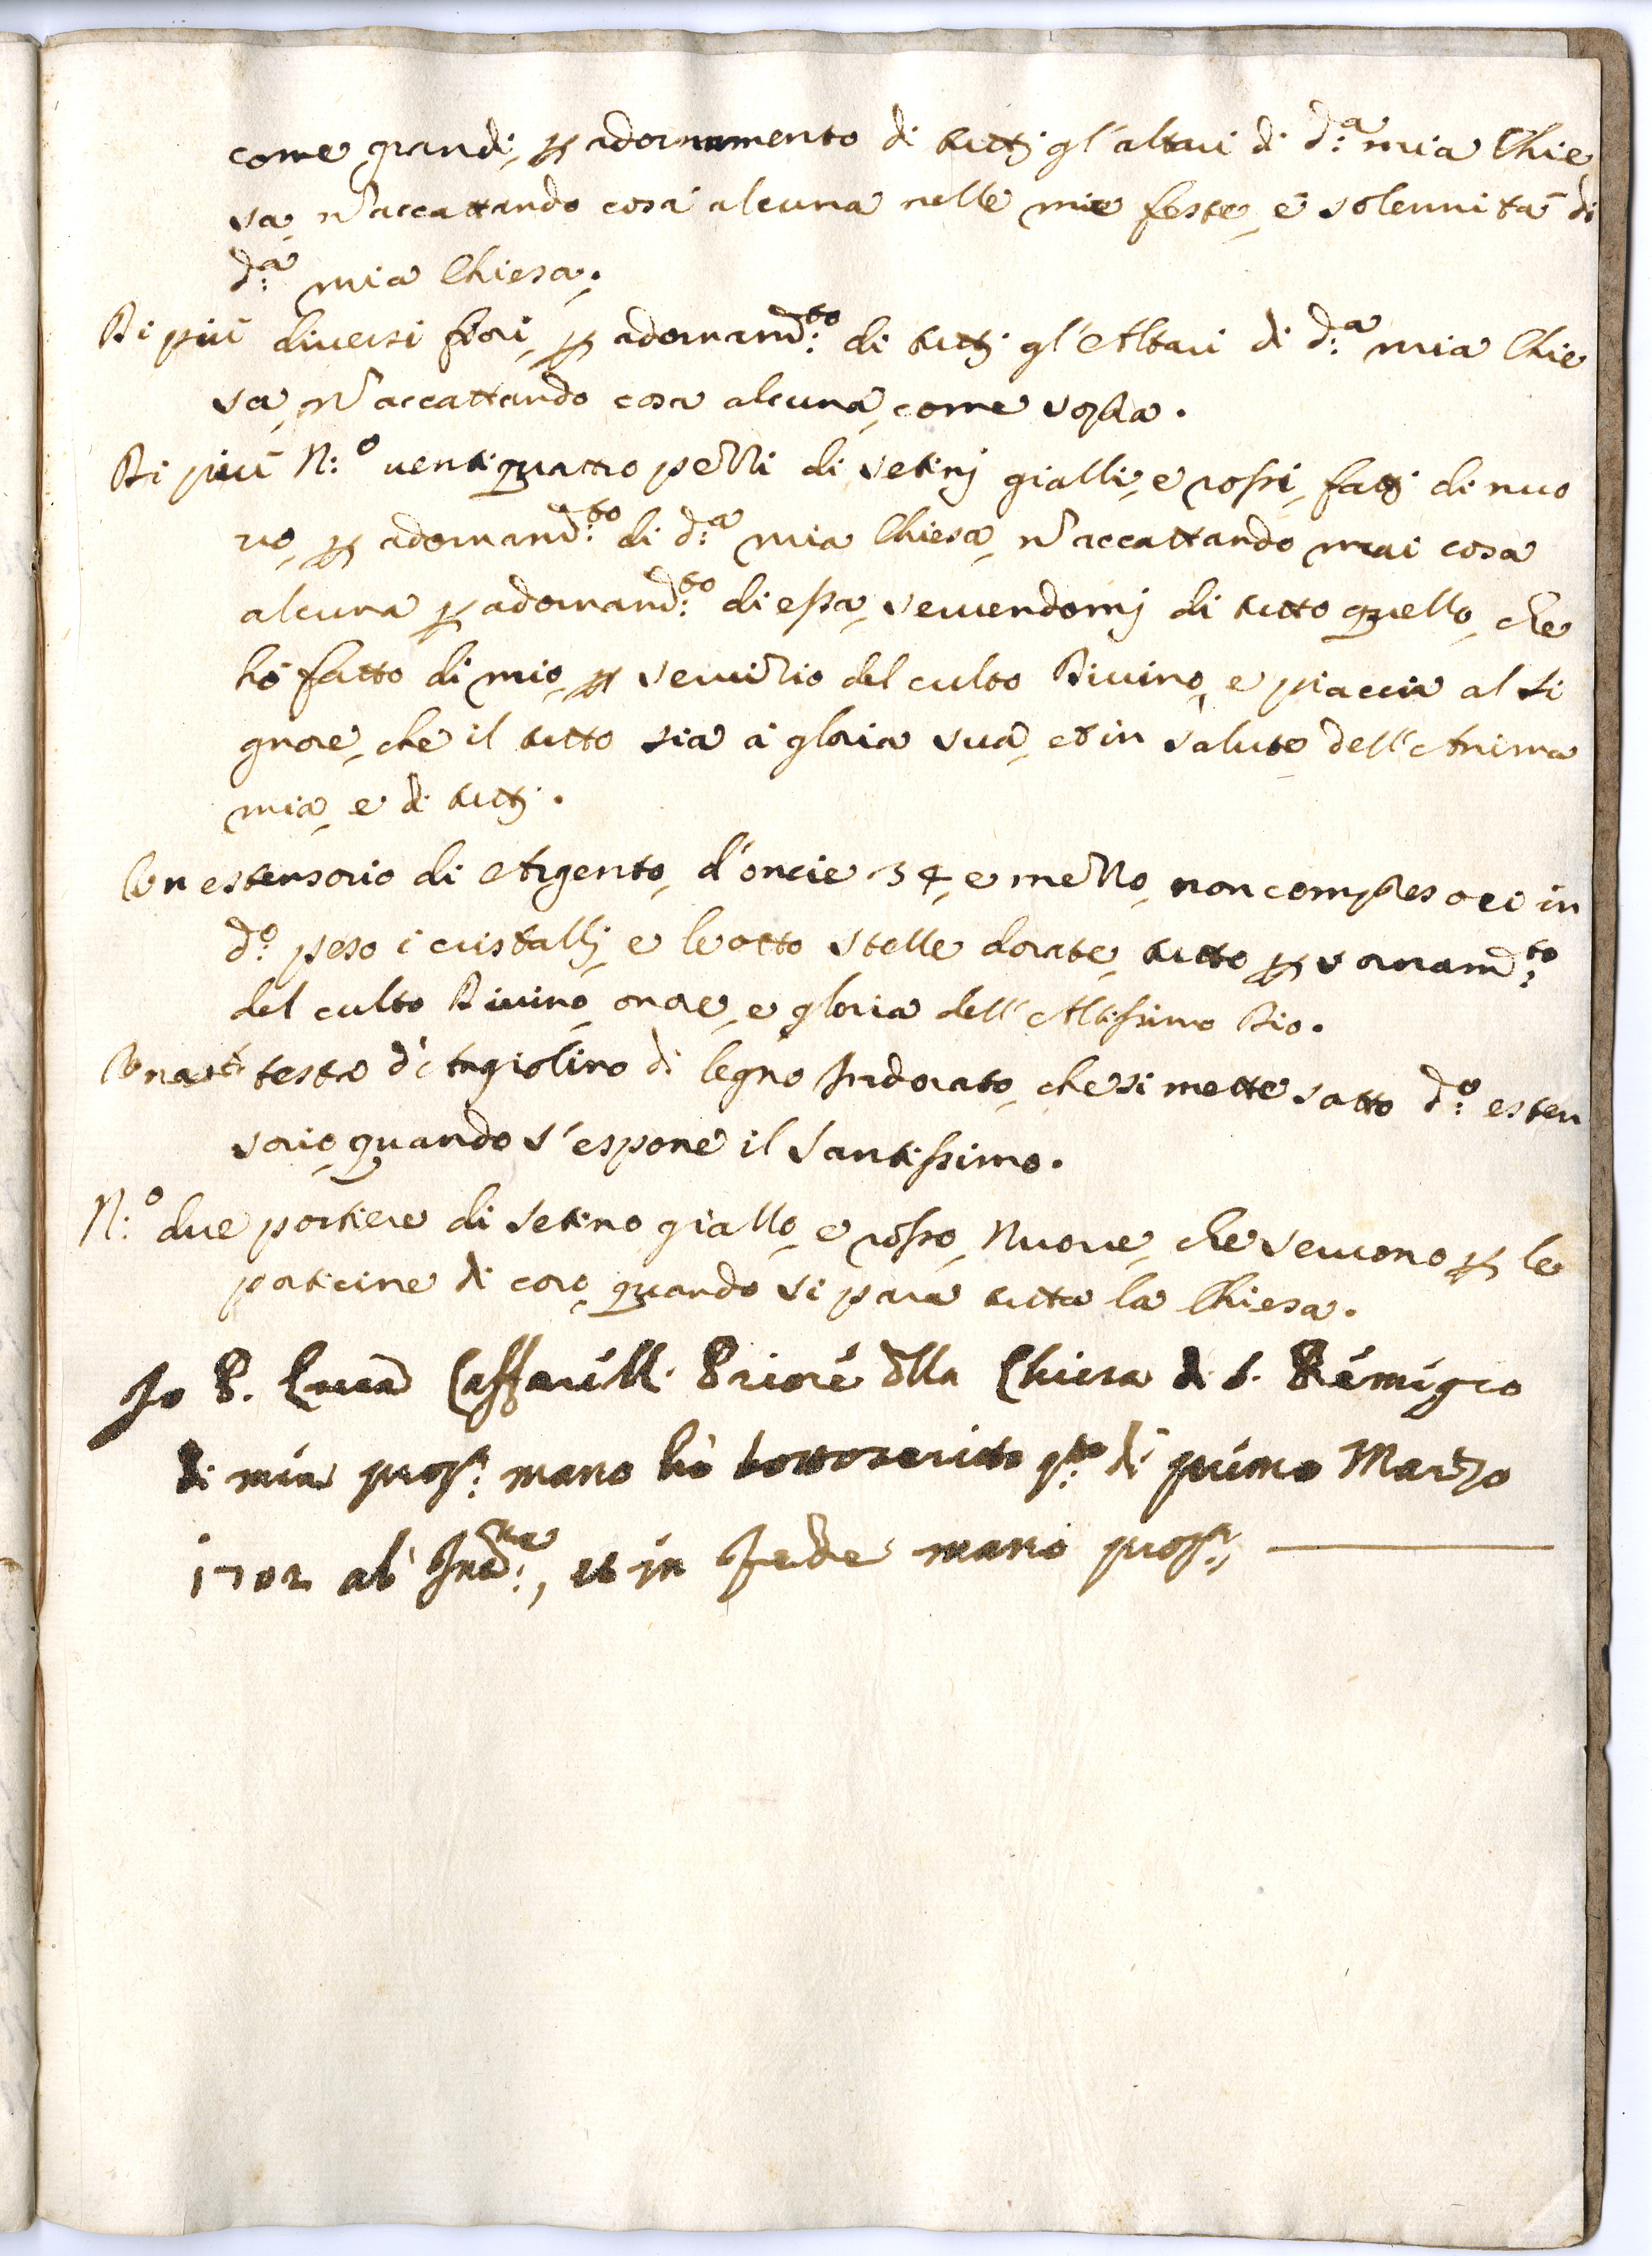 come grandi, p adornamento di tutti gl'altari di d:ª mia Chie
sa, nˉ accattando cosa alcuna nelle mie feste, e solennità di
d:ª mia Chiesa.
Di più diversi fiori, p adornam:to di tutti gl'Altari di d:ª mia Chie
sa, nˉ accattando cosa alcuna, come sopra.
Di più N:º uentiquattro pezzi di setinj gialli, e rossi, fatti di nuo
uo, p adornam:to di d:ª mia Chiesa, nˉ accattando mai cosa
alcuna p adornam:to di essa, seruendomj di tutto quello, che
hò fatto di mio, p seruizio del culto Diuino, e piaccia al Si
gnore, che il tutto sia à gloria sua, et in salute dell'Anima
mia, e di tutti.
Un estensorio di Argento, d'oncie 34, e mezzo, non compresoci in
dº peso i cristallj, e le otto stelle dorate, tutto p ornam:to
del culto Diuino, onore, e gloria dell'Altissimo Dio.
Una testa d'Angiolino di legno Indorato, che si mette sotto d:º esten
sorio, quando s'espone il Santissimo.
N:º due portiere di setino giallo, e rosso, Nuoue, che seruono p le
porticine di coro, quando si para tutta la Chiesa.
Io P. Luca Caffarelli Priore dlla Chiesa di S. Remigio
di mia prop:ª mano hò sottoscritto q:to dì primo Marzo
1702 ab Inc:ne, et in fede mano prop:ª